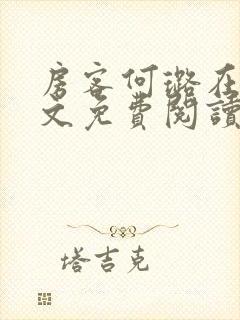 房客何璐在
文免費閱讀
塔吉克